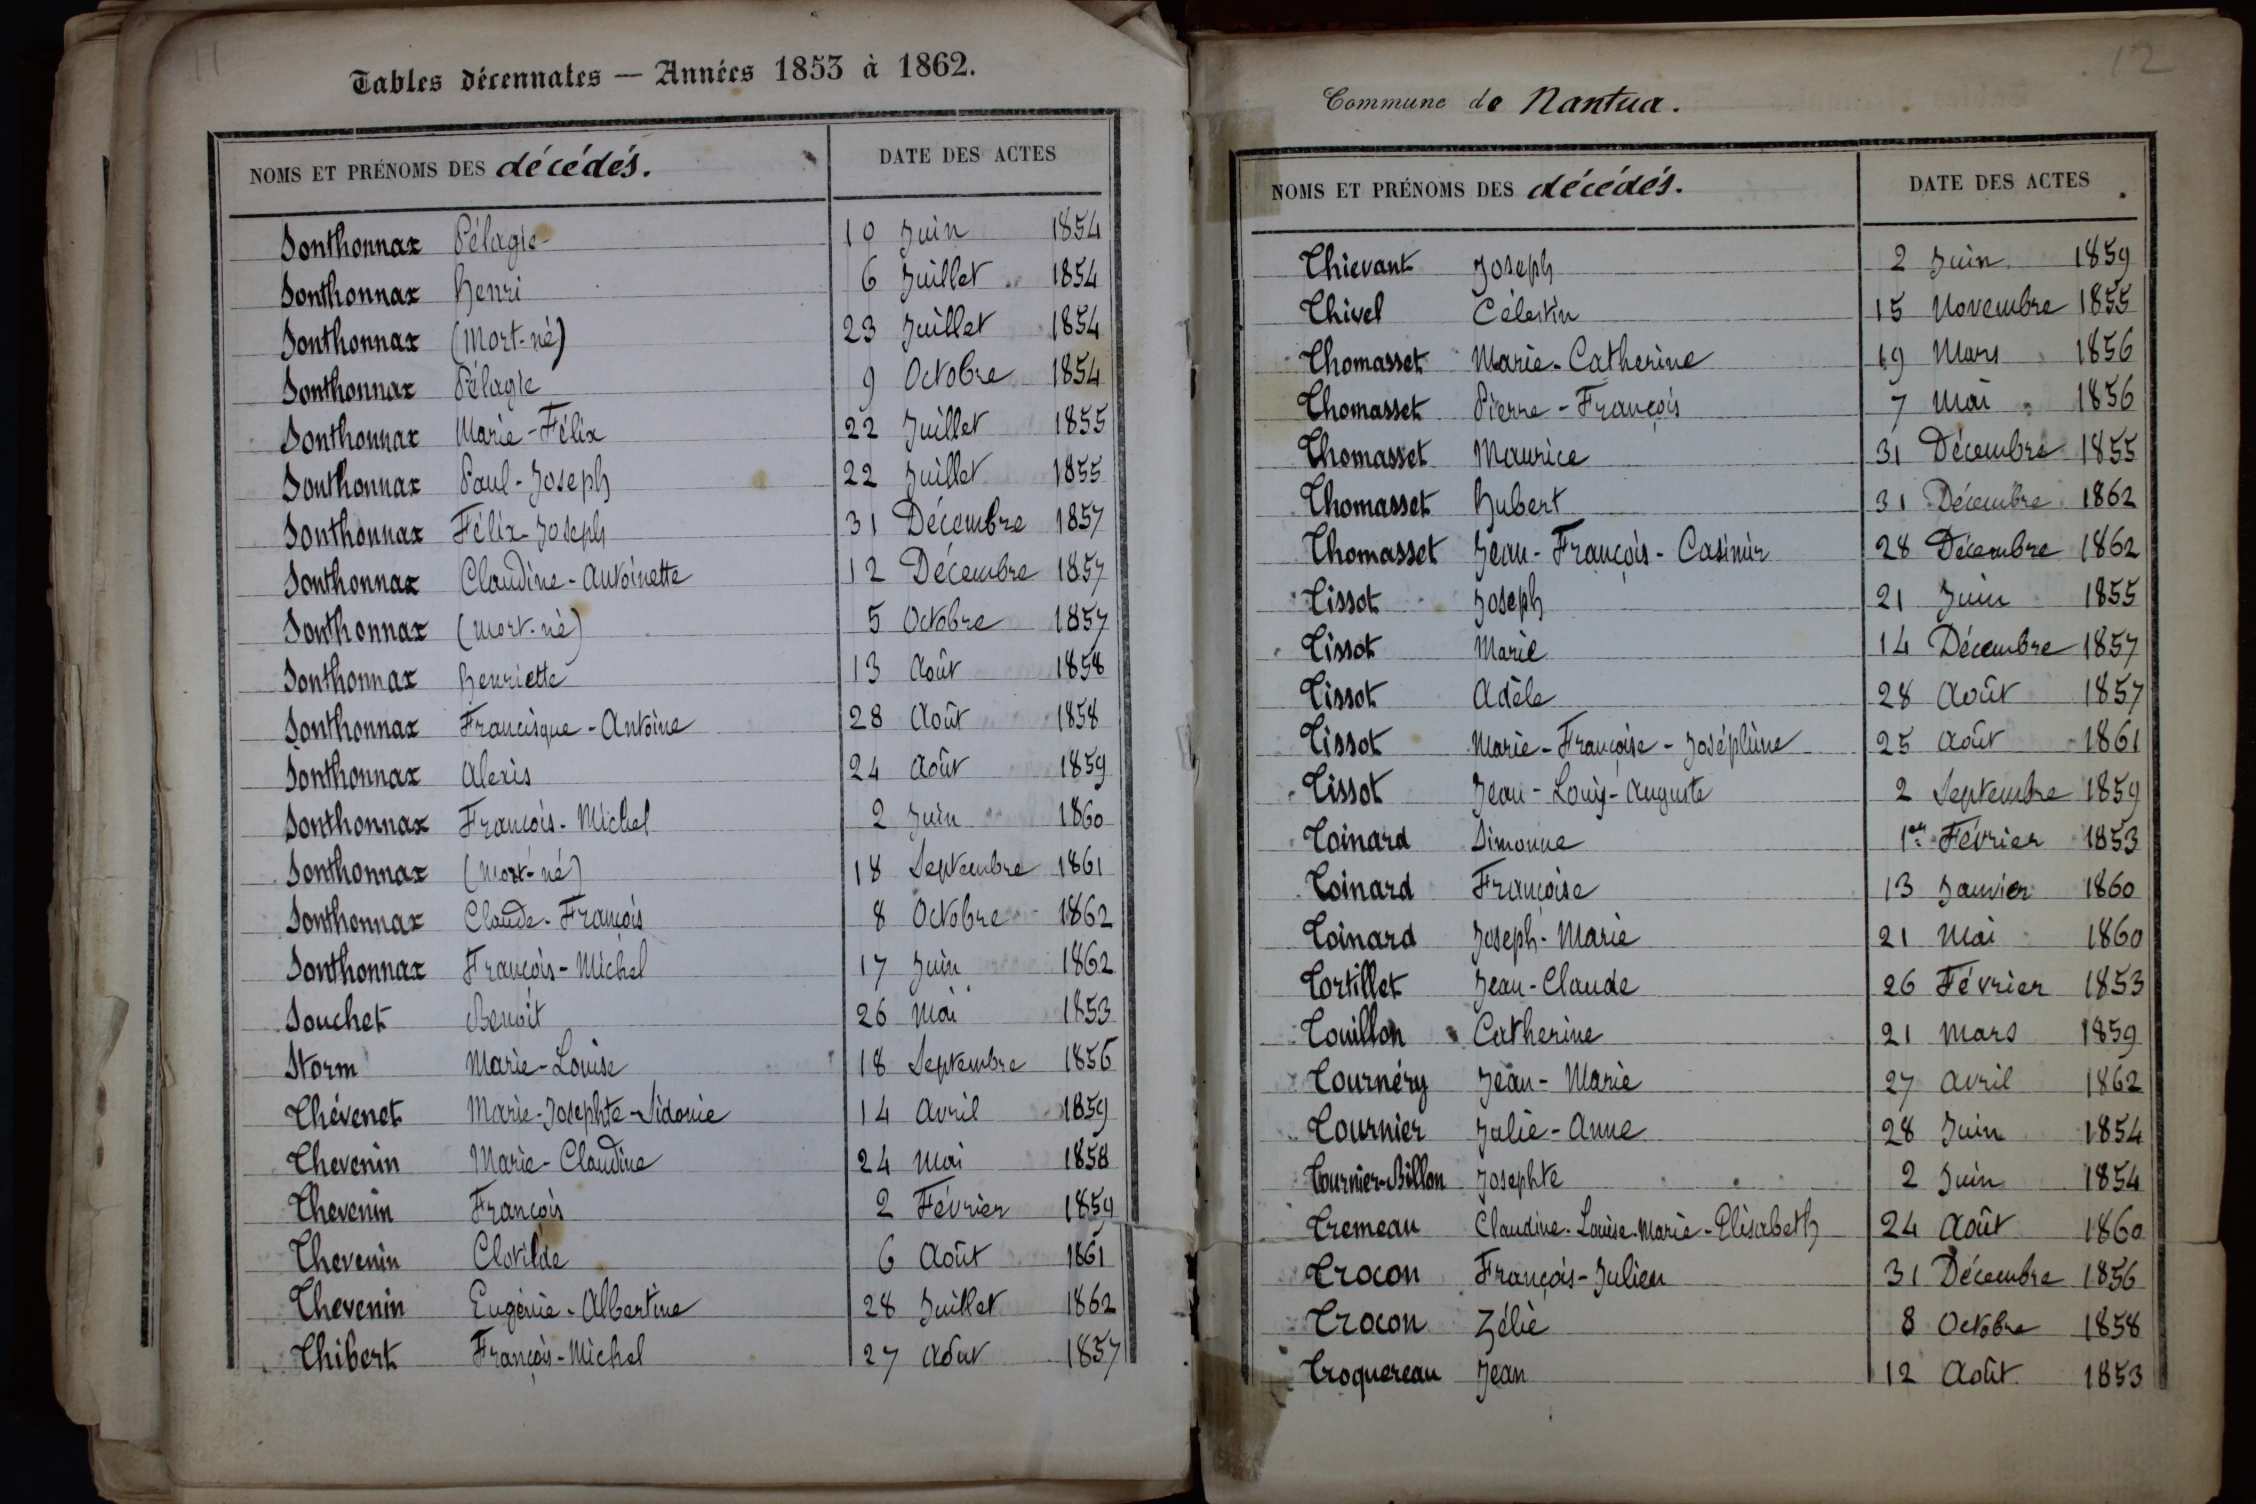 11
Tables décennales — Années 1853 à 1862.
NOMS ET PRÉNOMS DES décédés. DATE DES ACTES
Sonthonnax Pélagie 10 Juin 1854
Sonthonnax Henri 6 Juillet 1854
Sonthonnax (Mort-né) 23 Juillet 1854
Sonthonnax Pélagie 9 Octobre 1854
Sonthonnax Marie-Félix 22 Juillet 1855
Sonthonnax Paul-Joseph 22 Juillet 1855
Sonthonnax Félix-Joseph 31 Décembre 1857
Sonthonnax Claudine-Antoinette 12 Décembre 1857
Sonthonnax (Mort-né) 5 Octobre 1857
Sonthonnax Henriette 13 Août 1858
Sonthonnax Francisque-Antoine 28 Août 1858
Sonthonnax Alexis 24 Août 1859
Sonthonnax François-Michel 2 Juin 1860
Sonthonnax (Mort-né) 18 Septembre 1861
Sonthonnax Claude-François 8 Octobre 1862
Sonthonnax François-Michel 17 Juin 1862
Souchet Benoît 26 Mai 1853
Storm Marie-Louise 18 Septembre 1856
Thévenet Marie-Josephte-Sidonie 14 Avril 1859
Thevenin Marie-Claudine 24 Mai 1858
Thevenin François 2 Février 1859
Thevenin Clotilde 6 Août 1861
Thevenin Eugénie-Albertine 28 Juillet 1862
Thibert François-Michel 27 Août 1857
12
Commune de Nantua.
NOMS ET PRÉNOMS DES décédés. DATE DES ACTES
Thievant Joseph 2 Juin 1859
Thivel Célestin 15 Novembre 1855
Thomasset Marie-Catherine 19 Mars 1856
Thomasset Pierre-François 7 Mai 1856
Thomasset Maurice 31 Décembre 1855
Thomasset Hubert 31 Décembre 1862
Thomasset Jean-François-Casimir 28 Décembre 1862
Tissot Joseph 21 Juin 1855
Tissot Marie 14 Décembre 1857
Tissot Adèle 28 Août 1857
Tissot Marie-Françoise-Joséphine 25 Août 1861
Tissot Jean-Louis-Auguste 2 Septembre 1859
Toinard Simonne 1er Février 1853
Toinard Françoise 13 Janvier 1860
Toinard Joseph-Marie 21 Mai 1860
Tortillet Jean-Claude 26 Février 1853
Touillon Catherine 21 Mars 1859
Tournéry Jean-Marie 27 Avril 1862
Tournier Julie-Anne 28 Juin 1854
Tournier-Billon Josephte 2 Juin 1854
Tremeau Claudine-Louise-Marie-Elisabeth 24 Août 1860
Trocon François-Julien 31 Décembre 1856
Trocon Zélie 8 Octobre 1858
Troquereau Jean 12 Août 1853